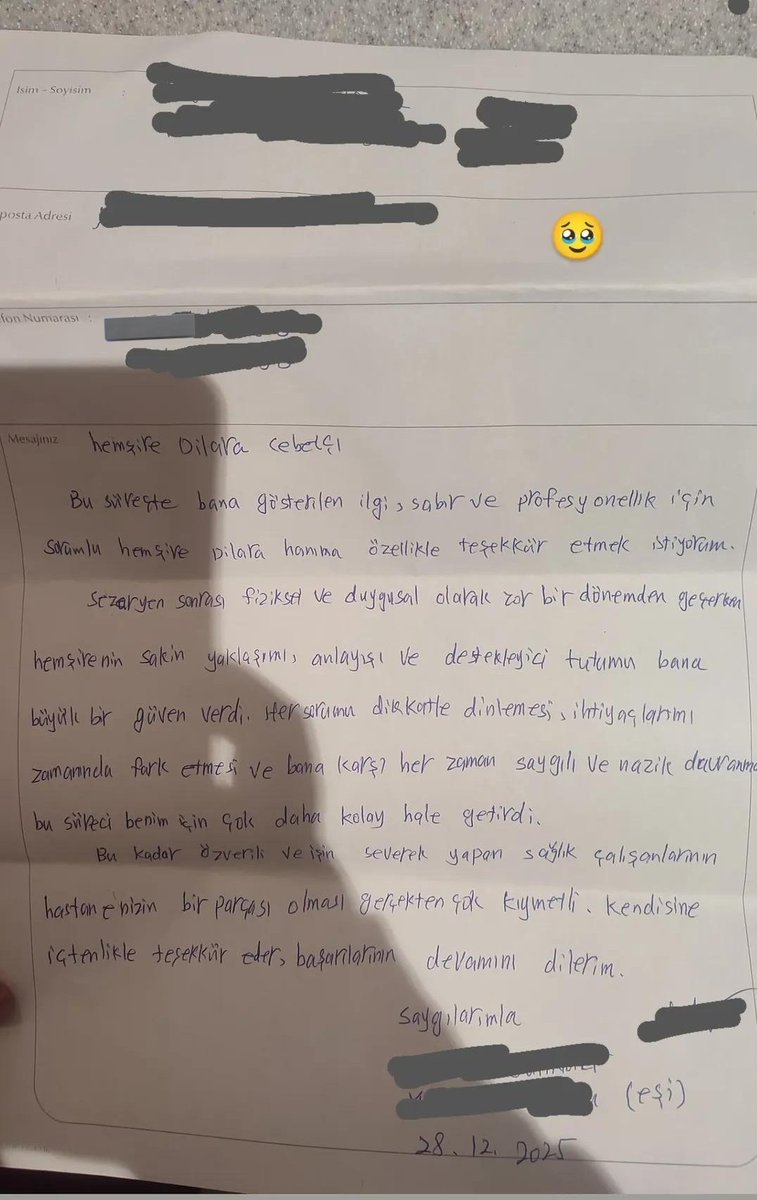 İsim - Soyisim :
posta Adresi
fon Numarası :
Mesajınız
hemşire Dilara Cebelçı
Bu süreçte bana gösterilen ilgi, sabır ve profesyonellik için
sorumlu hemşire Dilara hanıma özellikle teşekkür etmek istiyorum.
Sezaryen sonrası fiziksel ve duygusal olarak zor bir dönemden geçerken
hemşirenin sakin yaklaşımı, anlayışı ve destekleyici tutumu bana
büyük bir güven verdi. Her sorumu dikkatle dinlemesi, ihtiyaçlarımı
zamanında fark etmesi ve bana karşı her zaman saygılı ve nazik davranma
bu süreci benim için çok daha kolay hale getirdi.
Bu kadar özverili ve işin severek yapan sağlık çalışanlarının
hastanenizin bir parçası olması gerçekten çok kıymetli. Kendisine
içtenlikle teşekkür eder, başarılarının devamını dilerim.
Saygılarımla
(eşi)
28.12.2025